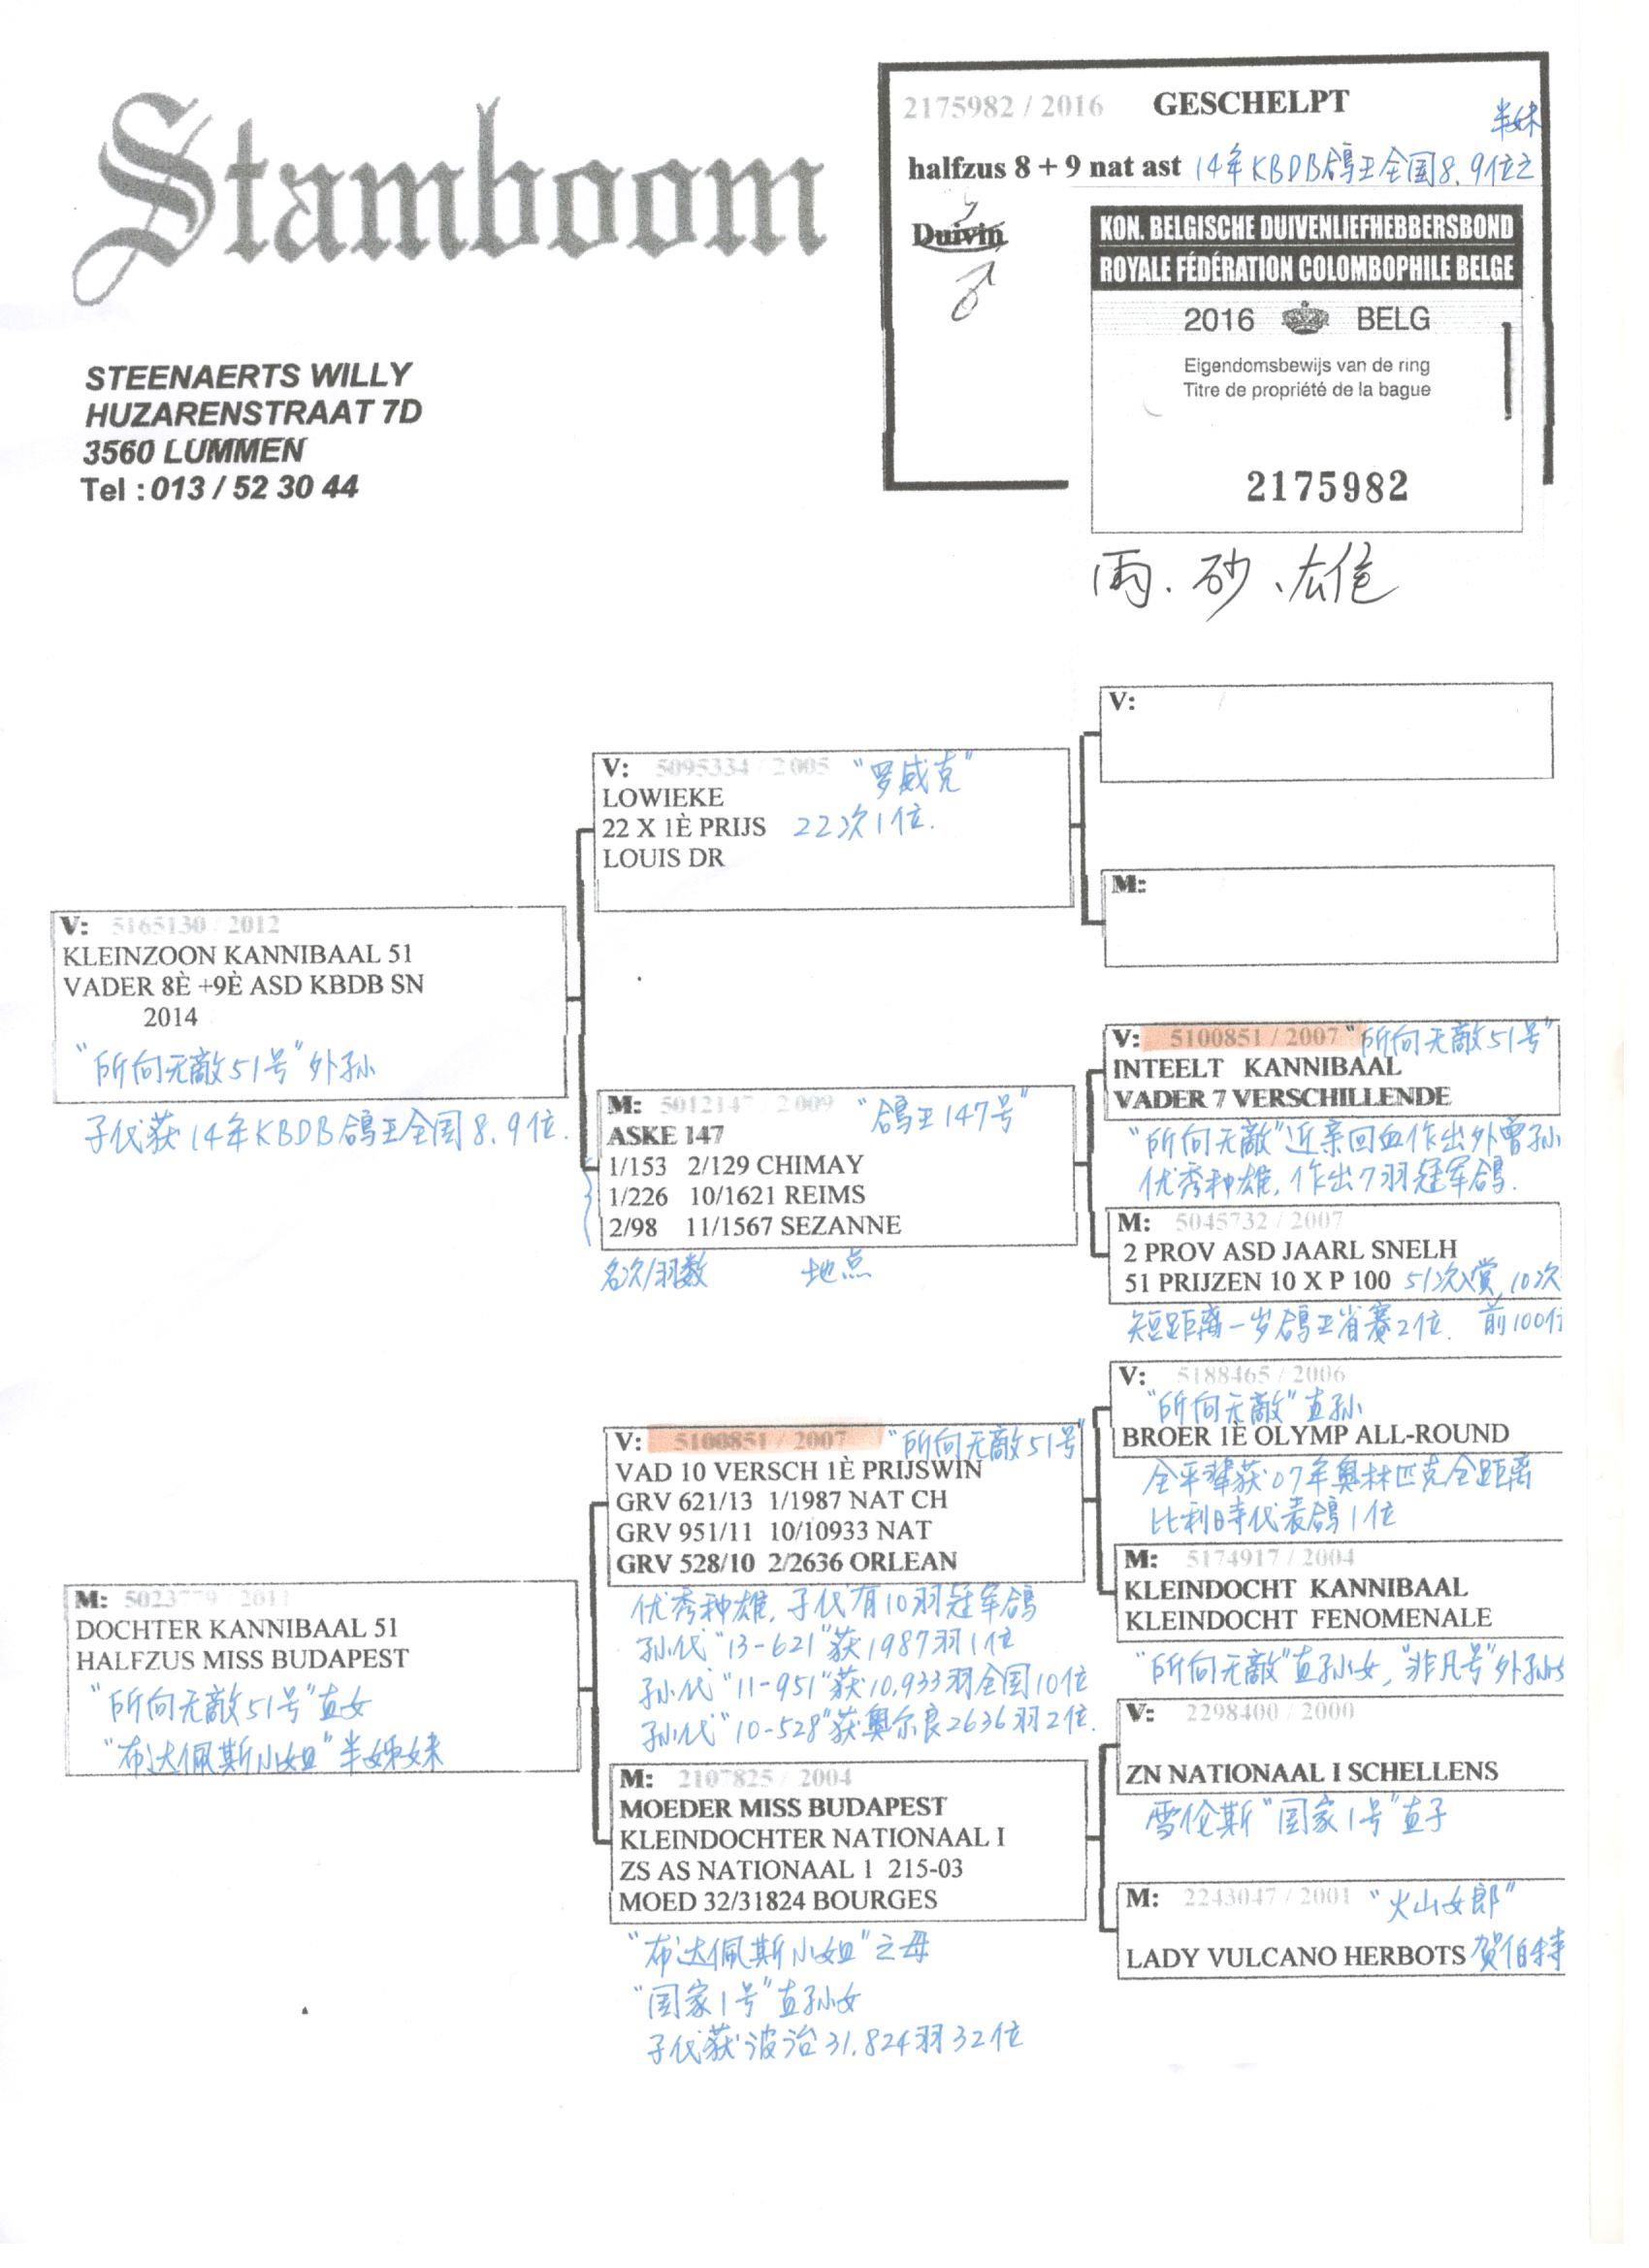 Stamboom
STEENAERTS WILLY
HUZARENSTRAAT 7D
3560 LUMMEN
Tel : 013 / 52 30 44
2175982 / 2016 GESCHELPT
半妹
halfzus 8 + 9 nat ast 14年KBDB鸽王全国8.9位之
Duivin
♂
KON. BELGISCHE DUIVENLIEFHEBBERSBOND
ROYALE FÉDÉRATION COLOMBOPHILE BELGE
2016 BELG
Eigendomsbewijs van de ring
Titre de propriété de la bague
2175982
雨.砂、雄
V: 5165130 / 2012
KLEINZOON KANNIBAAL 51
VADER 8È +9È ASD KBDB SN
2014
"所向无敵51号"外孙
子代获14年KBDB鸽王全国8.9位.
M: 5023779 / 2011
DOCHTER KANNIBAAL 51
HALFZUS MISS BUDAPEST
"所向无敵51号"直女
"布达佩斯小姐"半姊妹
V: 5095334 / 2005 "罗威克"
LOWIEKE
22 X 1È PRIJS 22次1位.
LOUIS DR
M: 5012147 / 2009 "鸽王147号"
ASKE 147
1/153 2/129 CHIMAY
1/226 10/1621 REIMS
2/98 11/1567 SEZANNE
名次/羽数 地点
V: 5100851 / 2007 "所向无敵51号"
VAD 10 VERSCH 1È PRIJSWIN
GRV 621/13 1/1987 NAT CH
GRV 951/11 10/10933 NAT
GRV 528/10 2/2636 ORLEAN
优秀种雄,子代有10羽冠军鸽
孙代"13-621"获1987羽1位
孙代"11-951"获10,933羽全国10位
孙代"10-528"获奥尔良2636羽2位.
M: 2107825 / 2004
MOEDER MISS BUDAPEST
KLEINDOCHTER NATIONAAL I
ZS AS NATIONAAL 1 215-03
MOED 32/31824 BOURGES
"布达佩斯小姐"之母
"国家1号"直孙女
子代获波治31.824羽32位
V:
M:
V: 5100851 / 2007 "所向无敵51号"
INTEELT KANNIBAAL
VADER 7 VERSCHILLENDE
"所向无敵"近亲回血作出外曾孙
优秀种雄,作出7羽冠军鸽.
M: 5045732 / 2007
2 PROV ASD JAARL SNELH
51 PRIJZEN 10 X P 100 51次入赏,10次
短距离一岁鸽王省赛2位. 前100位
V: 5188465 / 2006
"所向无敵"直孙
BROER 1È OLYMP ALL-ROUND
全平辈获07年奥林匹克全距离
比利时代表鸽1位
M: 5174917 / 2004
KLEINDOCHT KANNIBAAL
KLEINDOCHT FENOMENALE
"所向无敵"直孙女,"非凡号"外孙
V: 2298400 / 2000
ZN NATIONAAL I SCHELLENS
雪伦斯"国家1号"直子
M: 2243047 / 2001 "火山女郎"
LADY VULCANO HERBOTS 贺伯特